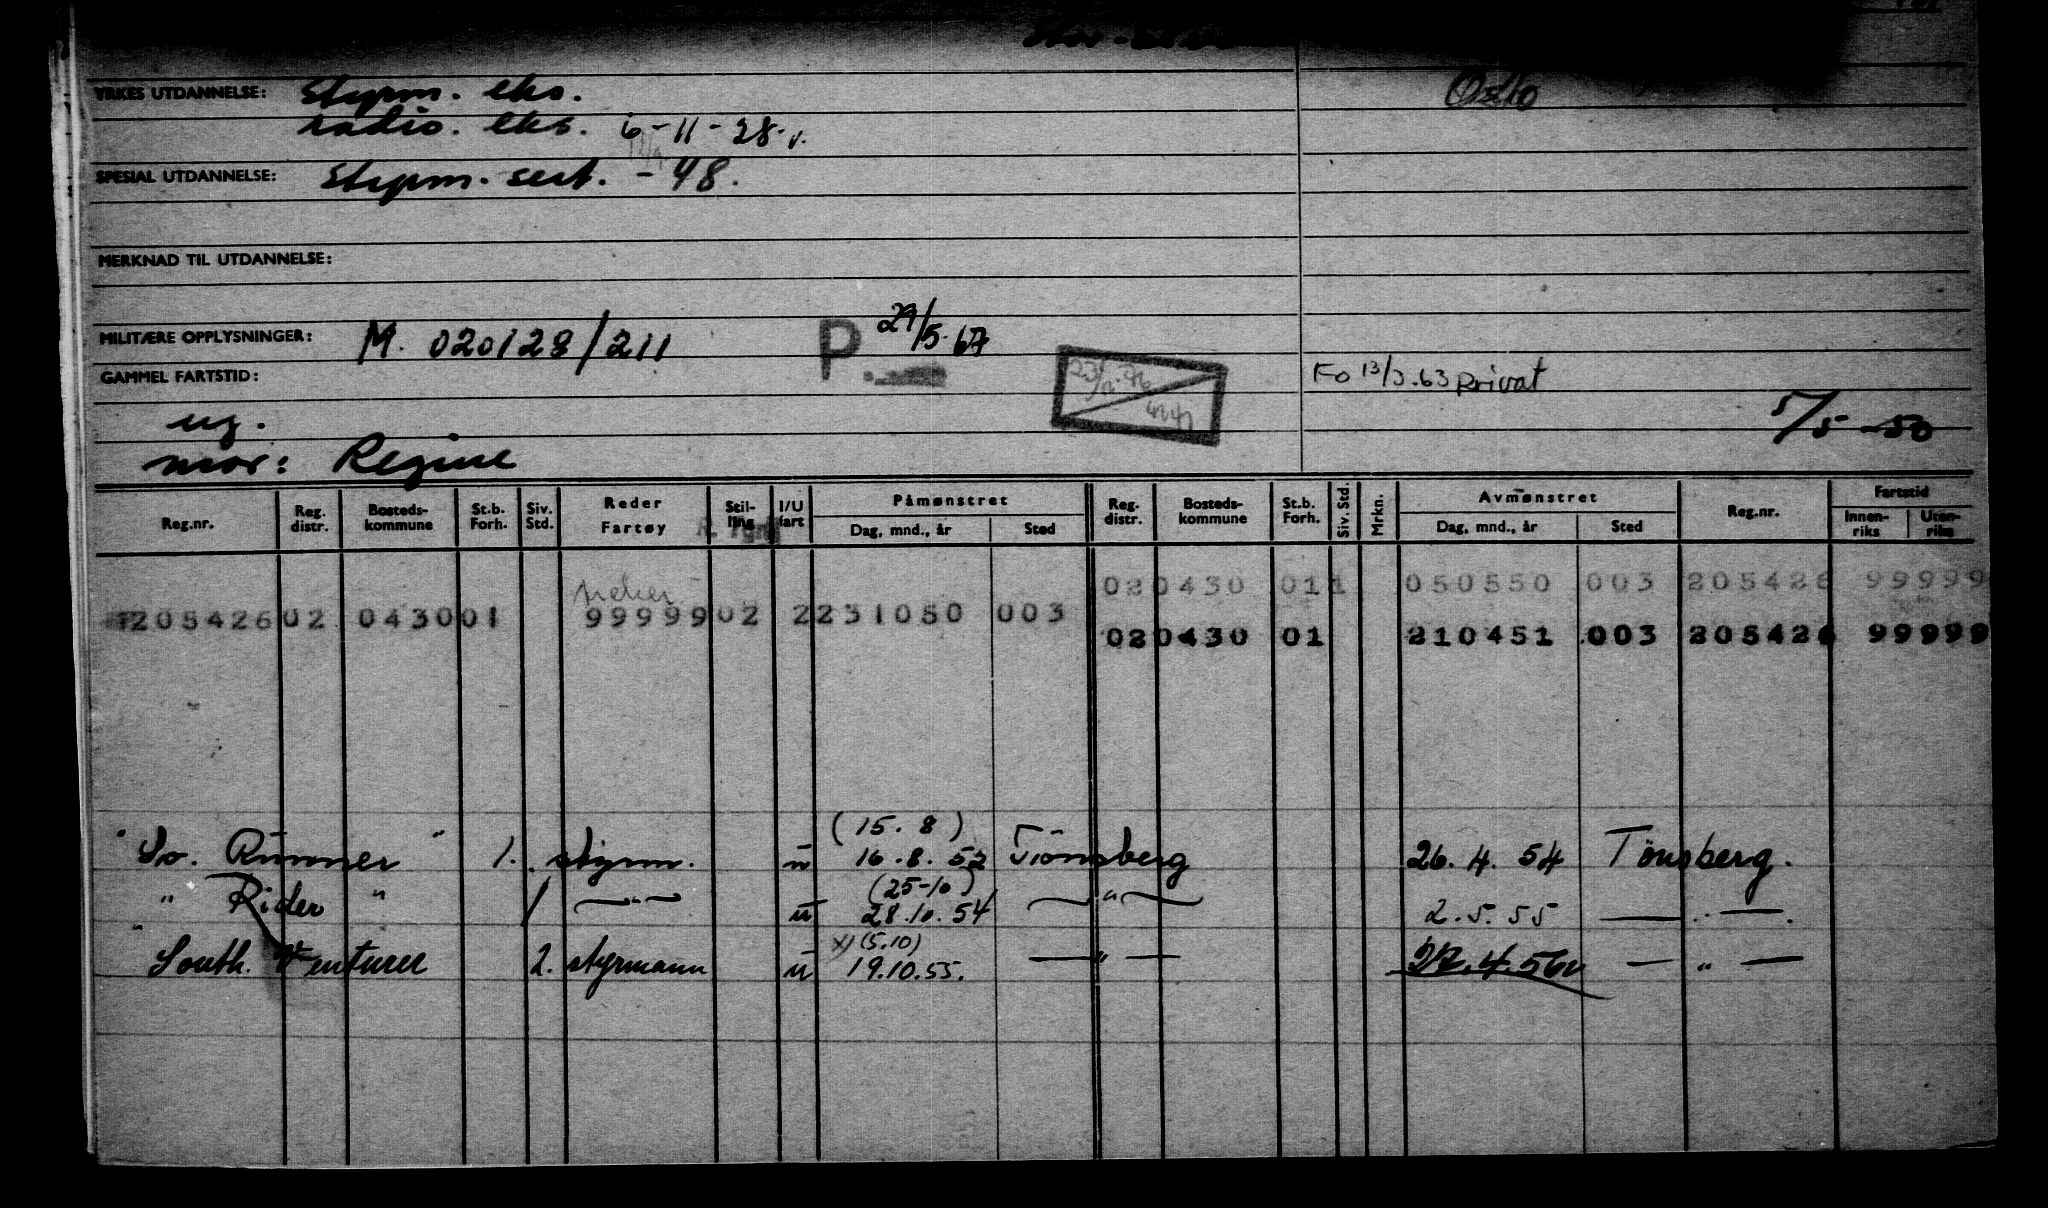 Oslo
YRKES UTDANNELSE: Styrm. eks.
radio. eks. 6-11-28.
SPESIAL UTDANNELSE: Styrm. sert. - 48.
MERKNAD TIL UTDANNELSE:
MILITÆRE OPPLYSNINGER: M. 020128/211 P 29/5.67
GAMMEL FARTSTID: Fo 13/3.63 Privat
ug. 5/5-50
mor: Regine
Reg.nr. Reg. distr. Bosteds-kommune St.b. Forh. Siv. Std. Reder Fartøy Stil-ling I/U fart Påmønstret Dag, mnd., år Sted Reg. distr. Bosteds-kommune St.b. Forh. Siv. Std. Mrkn. Avmønstret Dag, mnd., år Sted Reg.nr. Fartstid Innen-riks Uten-riks
020430 011 050550 003 205426 99999
205426 02 0430 01 99999 02 2 231050 003
020430 01 210451 003 205426 99999
(15.8)
" So. Runner " 1. styrm. u 16.8.53 Tönsberg 26.4.54 Tönsberg.
(25-10)
" Rider " 1 — " — u 28.10.54 — " — 2.5.55 — " —.
(5.10)
" South. Venturer 2. styrmann u 19.10.55. — " — 27.4.56 — " —